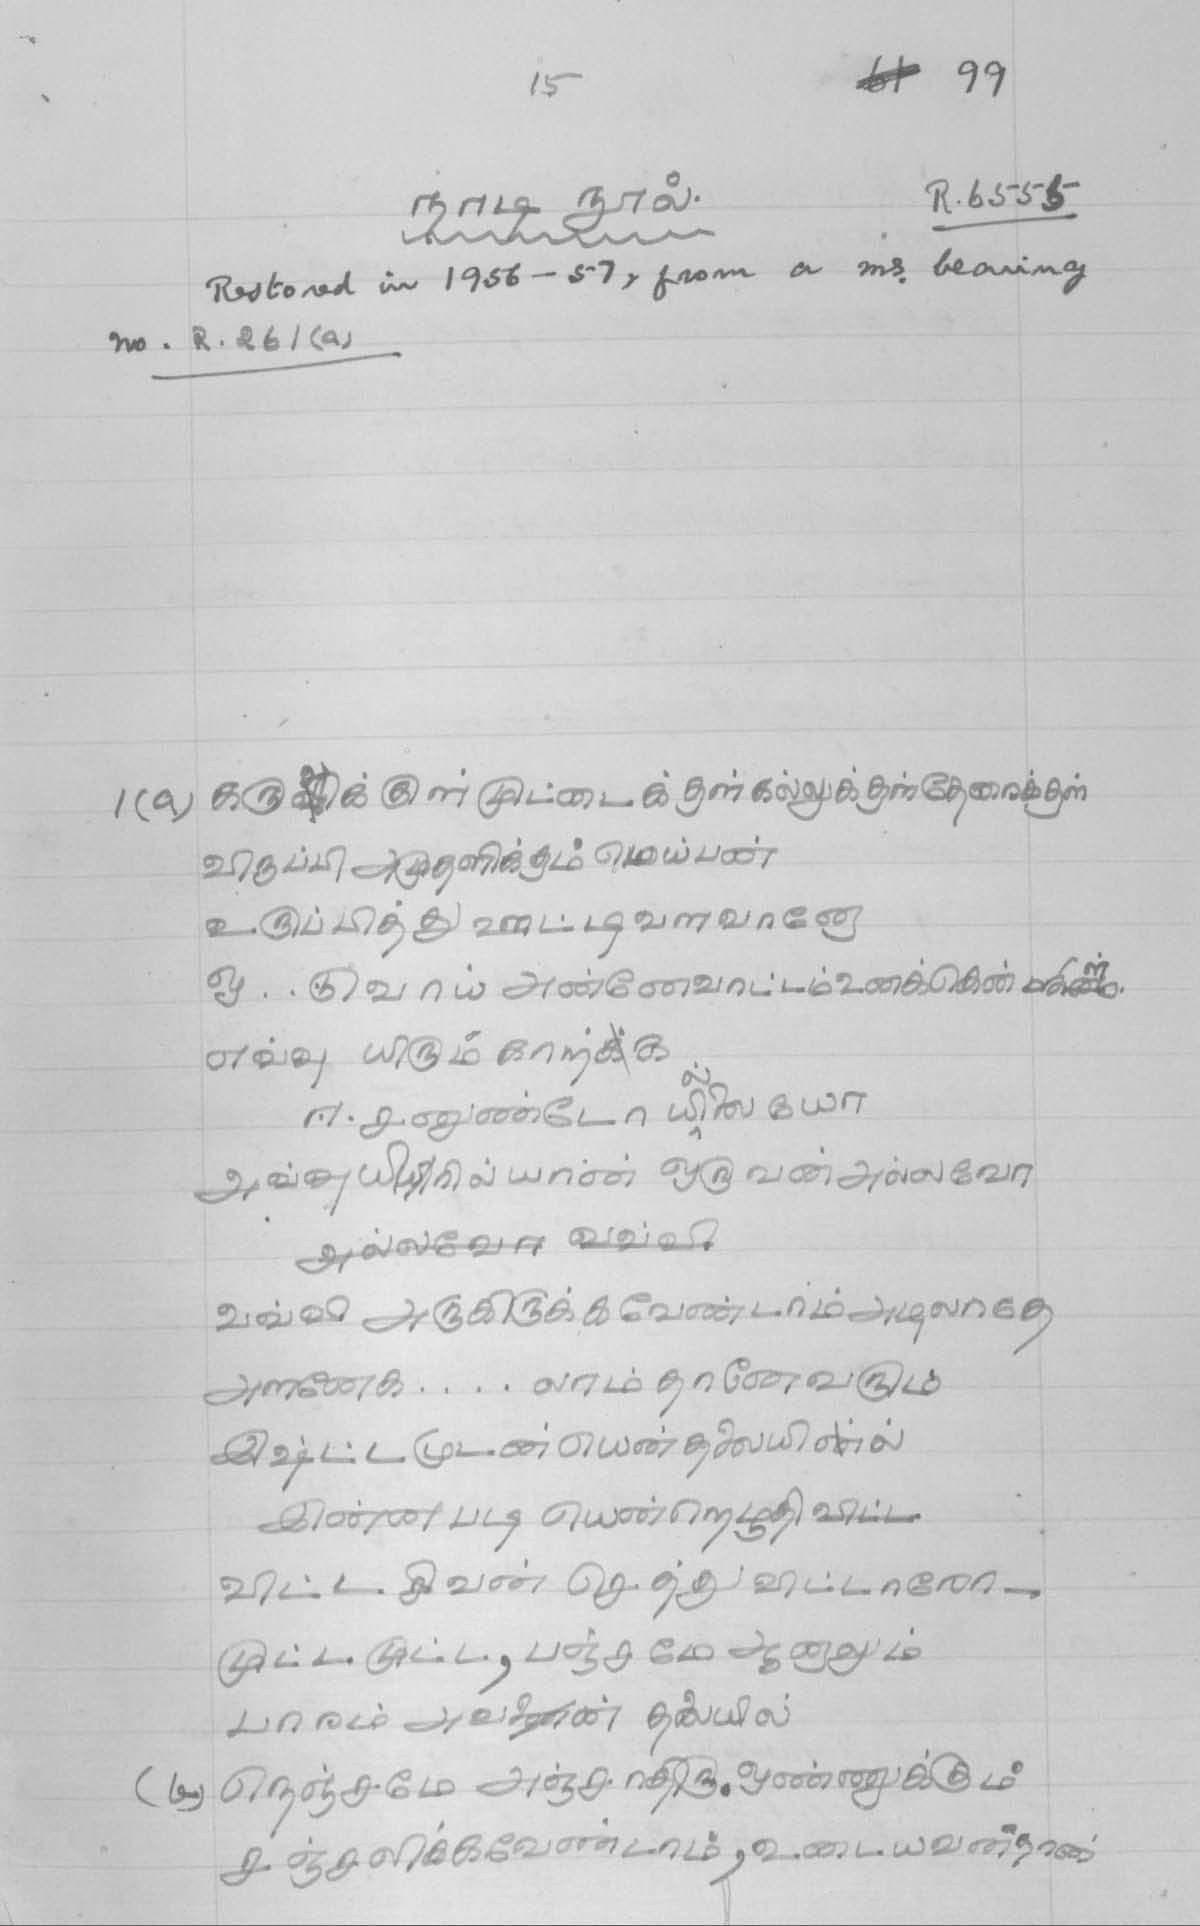 15 61 99
நாடி நூல்.
R.6555
Restored in 1956-57, from a ms. bearing
no. R. 261(a)
1(a) கருவிக்குள் முட்டைக்குள் கல்லுக்குள் தேரைக்குள்
விருப்பி அமுதளிக்கும் மெய்பன்
உருப்பித்து ஊட்டிவளவானே
ஒ..டுவாய் அன்னேவாட்டம் உனக்கென்
எவ்வு யிரும் காற்க்க
ஈ.சனுண்டோ யில்லையோ
அவ்வுயிரில் யான் ஒருவன் அல்லவோ
அல்லவோ வவ்வி
வவ்வி அருகிருக்க வேண்டாம் அடிலாதே
அனணக .... லாம் தானேவரும்
இஷ்ட்டமுடன் யென்தலையில்
இன்னபடி யென்றெழுதிவிட்ட
விட்ட சிவன் செத்து விட்டாலோ -
முட்ட முட்ட, பஞ்சமே ஆனாலும்
பாரம் அவன் தலையில்
(b) நெஞ்சமே அஞ்சாதிரு. ஒண்ணுக்கும்
சஞ்சலிக்கவேண்டாம், உடையவன்தான்